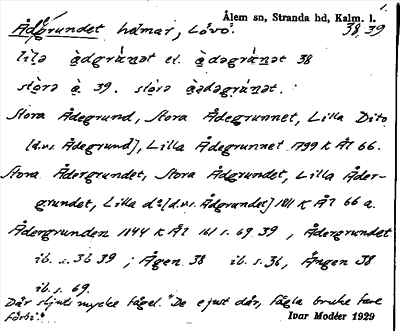 Ålem sn, Stranda hd, Kalm. l.
Ådgrundet holmar, Lövö. 38, 39
lilə ådgrunət el. ådəgrunət 38
storə å 39. storə ådəgrunət.
Stora Ådegrund, Stora Ådegrunnet, Lilla Dito
[d.v.s. Ådegrund], Lilla Ådegrunnet 1799 K Ål 66.
Stora Ådergrundet, Stora Ådgrundet, Lilla Åder-
grundet, Lilla do [d.v.s. Ådgrundet] 1811 K Ål 66 a.
Ådergrunden 1844 K Ål 161 s. 69 39, Ådergrundet
ib. s. 36 39; Ågen 38 ib. s. 36, Ången 38
ib. s. 69.
Där skjuts mycke fågel. "De e just där, fågla bruke fare
förbi."
Ivar Modéer 1929